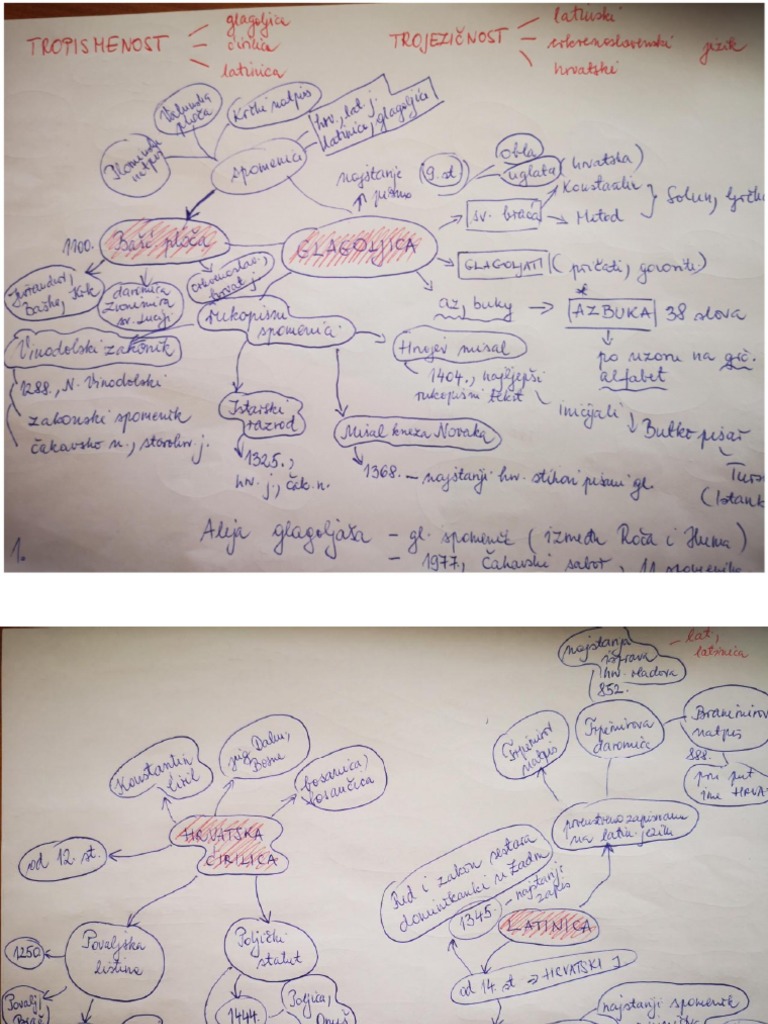 TROPISMENOST
glagoljica
ćirilica
latinica
TROJEZIČNOST
latinski
crkvenoslavenski jezik
hrvatski
Valunska
ploča
Krčki natpis
Plominski
natpis
spomenici
hrv., lat. j.
latinica, glagoljica
najstarije
pismo
(9. st)
obla
uglata (hrvatska)
sv. braća
Konstantin
Metod
Solun,
1100.
Bašć. ploča
GLAGOLJICA
GLAGOLJATI (pričati, govoriti)
Jurandvor,
Baška, Krk
darovnica
Zvonimira
sv. Luciji
crkvenoslav.,
hrvat. j.
rukopisni
spomenici
az, buky
AZBUKA 38 slova
po uzoru na grč.
alfabet
Vinodolski zakonik
1288., N. Vinodolski
zakonski spomenik
čakavsko n., starohrv j.
Hrvojev misal
1404., najljepši
rukopisni tekst
inicijali
Butko pisar
Istarski
razvod
1325.,
hrv. j., čak. n.
Misal kneza Novaka
1368. – najstariji hrv. stihovi pisani gl.
Aleja glagoljaša – gl. spomenik (između Roča i Huma)
– 1977, Čakavski sabor, 11 spomenika
1.
najstarija
isprava
hrv. vladara
852.
– lat.,
latinica
Trpimirov
natpis
Trpimirova
darovnica
Branimirov
natpis
888.
prvi put
ime HRVA
Konstantin
Ćiril
jug Dalm.,
Bosne
bosanica,
bosančica
HRVATSKA
ĆIRILICA
od 12. st.
prvenstveno zapisivana
na latin. jeziku
Red i zakon sestara
dominikanki u Zadru
1345. – najstariji
zapis
LATINICA
od 14. st → HRVATSKI J
Povaljska
listina
1250
Povalj,
Brač
Poljički
statut
1444.
Poljica,
najstariji spomenik